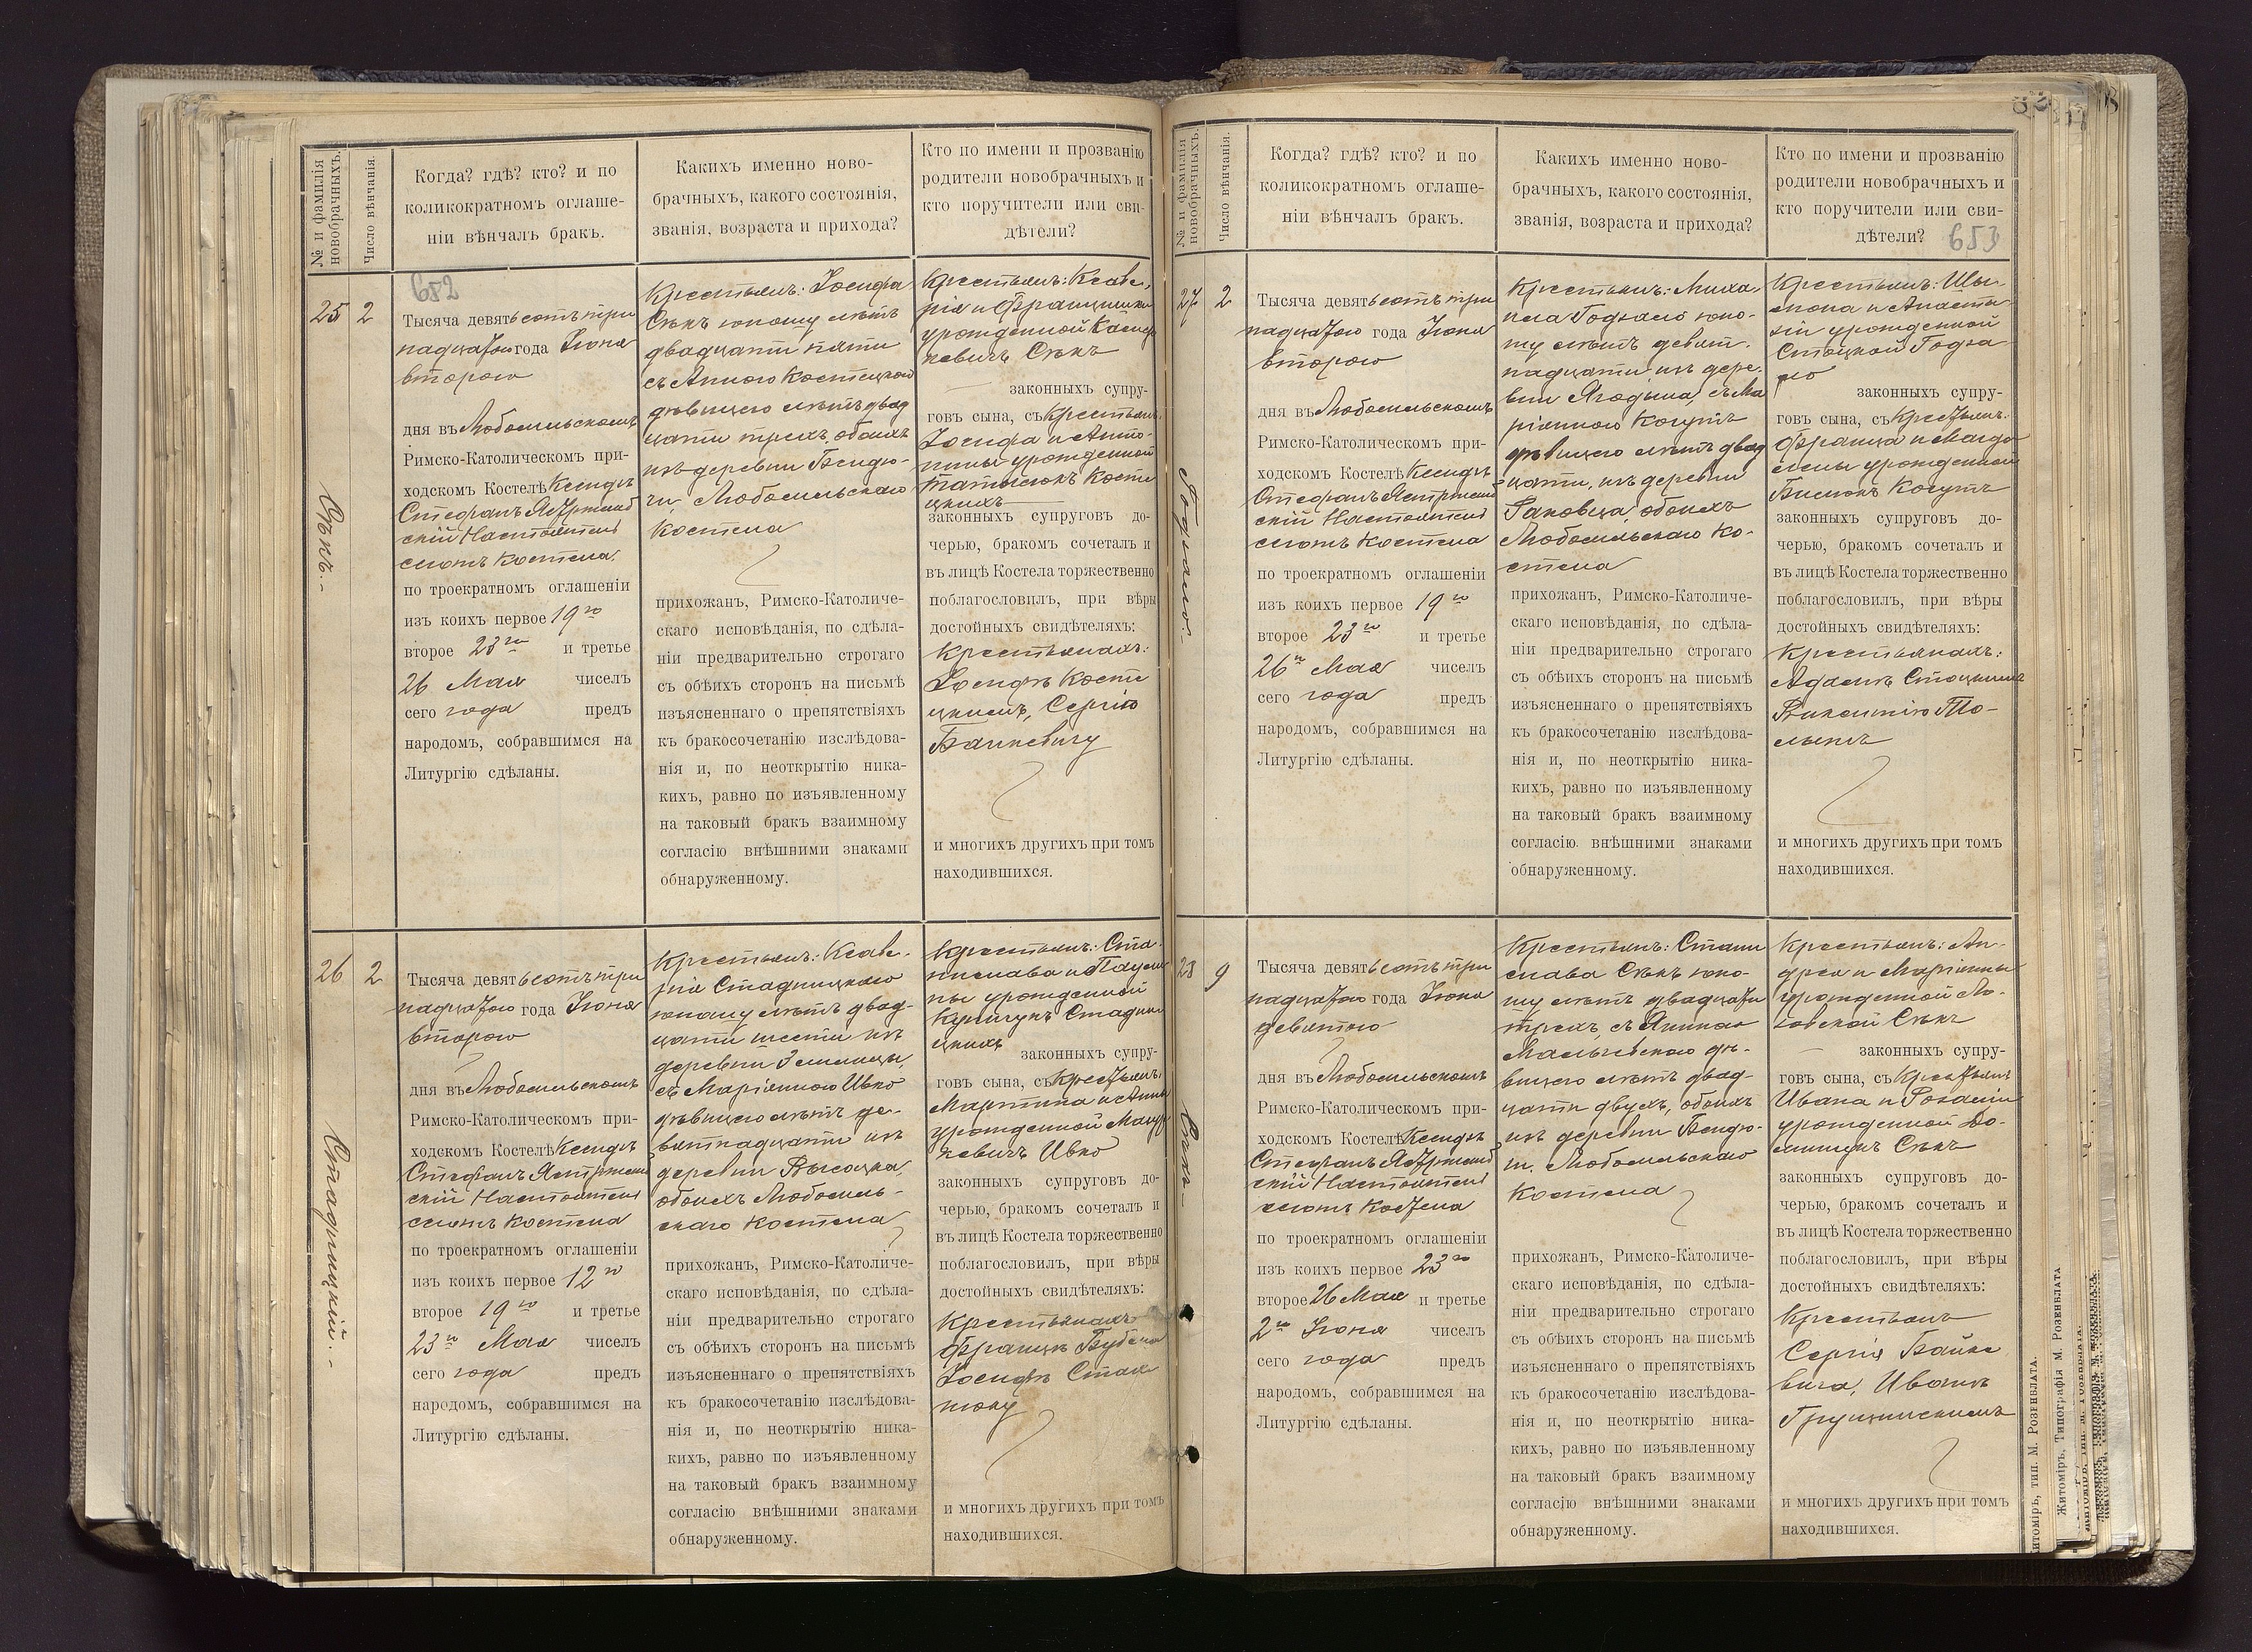 № и фамилія
новобрачныхъ.
Число вѣнчанія.
Когда? гдѣ? кто? и по
коликократномъ оглаше-
ніи вѣнчалъ бракъ.
Каких­ъ именно ново-
брачныхъ, какого состоянія,
званія, возраста и прихода?
Кто по имени и прозванію
родители новобрачныхъ и
кто поручители или сви-
дѣтели?
652
25
2
Сѣкъ.-
Тысяча девятьсотъ три
надцатого года Іюня
второго
дня въ Любомльскомъ
Римско-Католическомъ при-
ходскомъ Костелѣ Ксендзъ
Стефанъ Ястржемб
скій Настоятель
сего Костела
по троекратномъ оглашеніи
изъ коихъ первое 19го
второе 23го и третье
26 Мая чиселъ
сего года предъ
народомъ, собравшимся на
Литургію сдѣланы.
Крестьянъ: Іосифа
Сѣкъ юношу лѣтъ
двадцати пяти
съ Анною Костецкою
дѣвицею лѣтъ двад
цати трехъ, обоихъ
изъ деревни Бендю-
ги, Любомльскаго
Костела
прихожанъ, Римско-Католиче-
скаго исповѣданія, по сдѣла-
ніи предварительно строгаго
съ обѣихъ сторонъ на письмѣ
изъясненнаго о препятствіяхъ
къ бракосочетанію изслѣдова-
нія и, по неоткрытію ника-
кихъ, равно по изъявленному
на таковый бракъ взаимному
согласію внѣшними знаками
обнаруженному.
Крестьянъ: Ксаве-
рія и Францишки
урожденной
Сѣкъ
законныхъ супру-
говъ сына, съ Крестьянъ:
Іосифа и Анто-
нины урожденной
Кости
цкихъ
законныхъ супруговъ до-
черью, бракомъ сочеталъ и
въ лицѣ Костела торжественно
поблагословилъ, при вѣры
достойныхъ свидѣтеляхъ:
Крестьянахъ:
Іосифъ Кости
цкимъ, Сергію
Банкевичу
и многихъ другихъ при томъ
находившихся.
26
2
Стадницкій.-
Тысяча девятьсотъ три
надцатого года Іюня
второго
дня въ Любомльскомъ
Римско-Католическомъ при-
ходскомъ Костелѣ Ксендзъ
Стефанъ Ястржемб
скій Настоятель
сего Костела
по троекратномъ оглашеніи
изъ коихъ первое 12го
второе 19го и третье
23го Мая чиселъ
сего года предъ
народомъ, собравшимся на
Литургію сдѣланы.
Крестьянъ: Ксаве-
рія Стадницкаго
юношу лѣтъ двад-
цати шести изъ
деревни Земмицы,
съ Маріанною Ивко
дѣвицею лѣтъ де-
вятнадцати изъ
деревни Высоцка,
обоихъ Любомль-
скаго Костела
прихожанъ, Римско-Католиче-
скаго исповѣданія, по сдѣла-
ніи предварительно строгаго
съ обѣихъ сторонъ на письмѣ
изъясненнаго о препятствіяхъ
къ бракосочетанію изслѣдова-
нія и, по неоткрытію ника-
кихъ, равно по изъявленному
на таковый бракъ взаимному
согласію внѣшними знаками
обнаруженному.
Крестьянъ: Ста-
нислава и Паули
ны урожденной
Стадни
цкихъ
законныхъ супру-
говъ сына, съ Крестьянъ:
Мартина и Анны
урожденной
Ивко
законныхъ супруговъ до-
черью, бракомъ сочеталъ и
въ лицѣ Костела торжественно
поблагословилъ, при вѣры
достойныхъ свидѣтеляхъ:
Крестьянахъ
Францъ
Іосифъ
и многихъ другихъ при томъ
находившихся.
№ и фамилія
новобрачныхъ.
Число вѣнчанія.
Когда? гдѣ? кто? и по
коликократномъ оглаше-
ніи вѣнчалъ бракъ.
Какихъ именно ново-
брачныхъ, какого состоянія,
званія, возраста и прихода?
Кто по имени и прозванію
родители новобрачныхъ и
кто поручители или сви-
дѣтели?
653
27
2
Тысяча девятьсотъ три
надцатого года Іюня
второго
дня въ Любомльскомъ
Римско-Католическомъ при-
ходскомъ Костелѣ Ксендзъ
Стефанъ Ястржемб
скій Настоятель
сего Костела
по троекратномъ оглашеніи
изъ коихъ первое 19го
второе 23го и третье
26го Мая чиселъ
сего года предъ
народомъ, собравшимся на
Литургію сдѣланы.
Крестьянъ: Миха-
ила юно-
шу лѣтъ девят-
надцати изъ дере-
вни Ягодина, съ Ма
ріянною Когутъ
дѣвицею лѣтъ двад
цати, изъ деревни
Раковца, обоихъ
Любомльскаго Ко-
стела
прихожанъ, Римско-Католиче-
скаго исповѣданія, по сдѣла-
ніи предварительно строгаго
съ обѣихъ сторонъ на письмѣ
изъясненнаго о препятствіяхъ
къ бракосочетанію изслѣдова-
нія и, по неоткрытію ника-
кихъ, равно по изъявленному
на таковый бракъ взаимному
согласію внѣшними знаками
обнаруженному.
Крестьянъ: Шы-
мона и Анаста-
зіи урожденной
Стоцкой
законныхъ супру-
говъ сына, съ Крестьянъ:
Франца и Магда
лены урожденной
Когутъ
законныхъ супруговъ до-
черью, бракомъ сочеталъ и
въ лицѣ Костела торжественно
поблагословилъ, при вѣры
достойныхъ свидѣтеляхъ:
Крестьянахъ:
Адамъ Стоцкимъ
Викентію
и многихъ другихъ при томъ
находившихся.
28
9
Сѣкъ.-
Тысяча девятьсотъ три
надцатого года Іюня
девятого
дня въ Любомльскомъ
Римско-Католическомъ при-
ходскомъ Костелѣ Ксендзъ
Стефанъ Ястржемб
скій Настоятель
сего Костела
по троекратномъ оглашеніи
изъ коихъ первое 23го
второе 26 Мая и третье
2го Іюня чиселъ
сего года предъ
народомъ, собравшимся на
Литургію сдѣланы.
Крестьянъ: Стани
слава Сѣкъ юно-
шу лѣтъ двадцати
трехъ, съ Яниною
дѣ-
вицею лѣтъ двад-
цати двухъ, обоихъ
изъ деревни Бендю-
ги, Любомльскаго
Костела
прихожанъ, Римско-Католиче-
скаго исповѣданія, по сдѣла-
ніи предварительно строгаго
съ обѣихъ сторонъ на письмѣ
изъясненнаго о препятствіяхъ
къ бракосочетанію изслѣдова-
нія и, по неоткрытію ника-
кихъ, равно по изъявленному
на таковый бракъ взаимному
согласію внѣшними знаками
обнаруженному.
Крестьянъ: Ан-
дрея и Маріанны
урожденной
Сѣкъ
законныхъ супру-
говъ сына, съ Крестьянъ
Ивана и Розаліи
урожденной До-
Сѣкъ
законныхъ супруговъ до-
черью, бракомъ сочеталъ и
въ лицѣ Костела торжественно
поблагословилъ, при вѣры
достойныхъ свидѣтеляхъ:
Крестьянъ
Сергія Байке
вича, Иванъ
и многихъ другихъ при томъ
находившихся.
итоміръ, тип. М. Розенблата.
Житоміръ. Типографія М. Розенблата